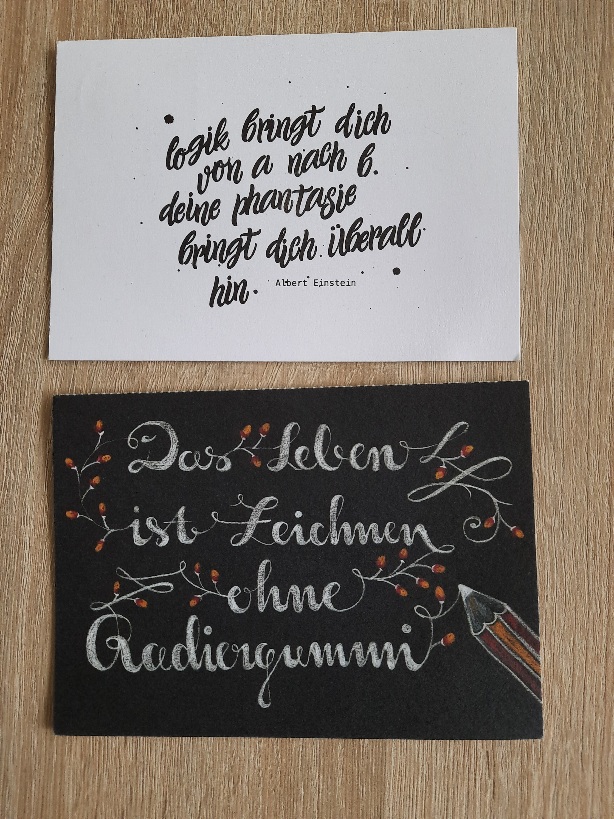 logik bringt dich
von a nach b.
deine phantasie
bringt dich überall
hin.
Albert Einstein
Das Leben
ist Zeichnen
ohne
Radiergummi